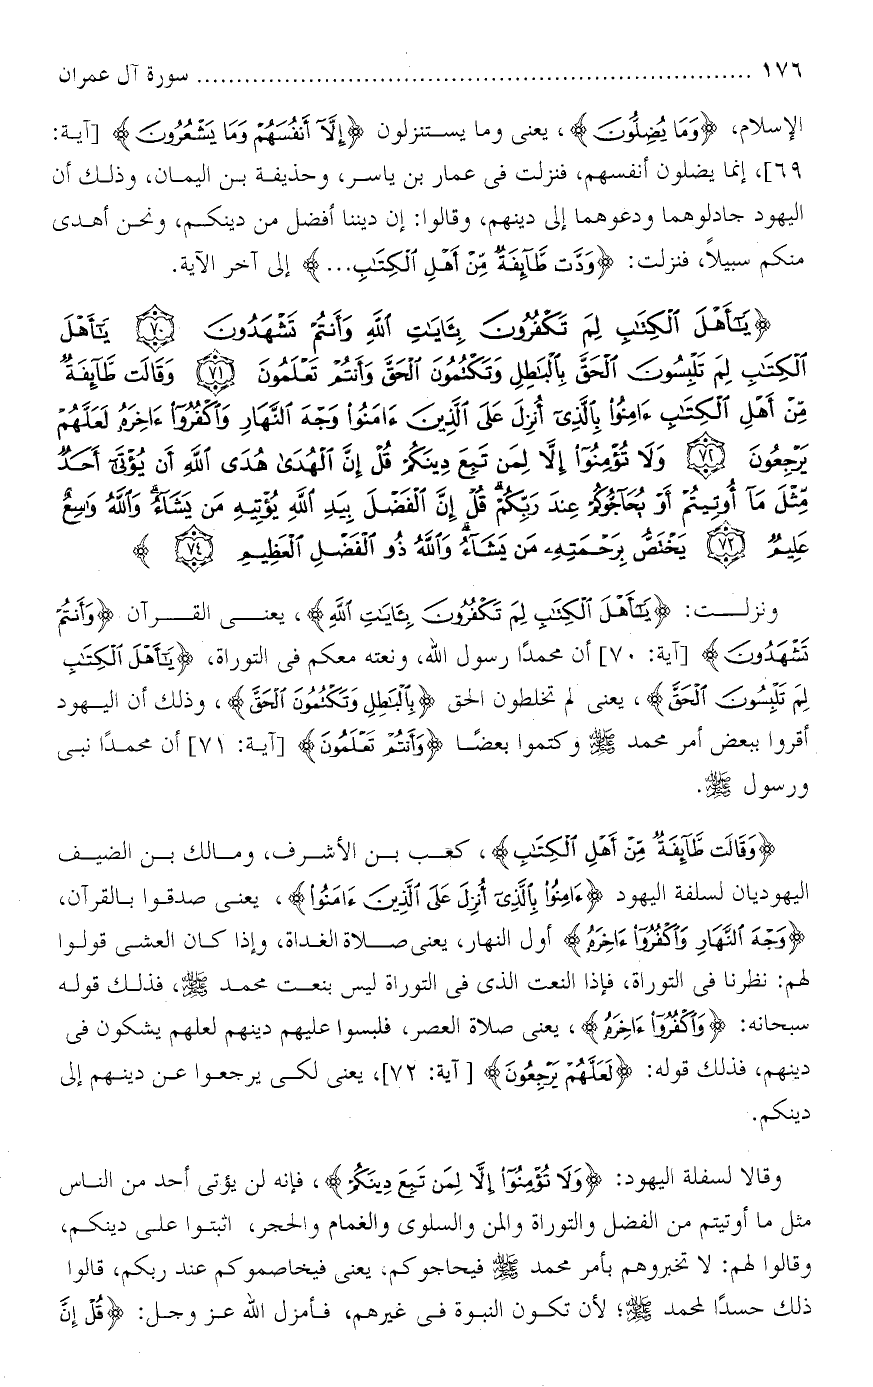 ١٧٦ ........................................................................ سورة آل عمران
الإسلام، ﴿وَمَا يُضِلُّونَ﴾، يعنى وما يستنزلون ﴿إِلَّآ أَنفُسَهُمْ وَمَا يَشْعُرُونَ﴾ [آية:
٦٩]، إنما يضلون أنفسهم، فنزلت فى عمار بن ياسر، وحذيفة بن اليمان، وذلك أن
اليهود جادلوهما ودعوهما إلى دينهم، وقالوا: إن ديننا أفضل من دينكم، ونحن أهدى
منكم سبيلاً، فنزلت: ﴿وَدَّت طَّآئِفَةٌ مِّنْ أَهْلِ ٱلْكِتَٰبِ...﴾ إلى آخر الآية.
﴿يَٰٓأَهْلَ ٱلْكِتَٰبِ لِمَ تَكْفُرُونَ بِـَٔايَٰتِ ٱللَّهِ وَأَنتُمْ تَشْهَدُونَ ٧٠ يَٰٓأَهْلَ
ٱلْكِتَٰبِ لِمَ تَلْبِسُونَ ٱلْحَقَّ بِٱلْبَٰطِلِ وَتَكْتُمُونَ ٱلْحَقَّ وَأَنتُمْ تَعْلَمُونَ ٧١ وَقَالَت طَّآئِفَةٌ
مِّنْ أَهْلِ ٱلْكِتَٰبِ ءَامِنُوا۟ بِٱلَّذِىٓ أُنزِلَ عَلَى ٱلَّذِينَ ءَامَنُوا۟ وَجْهَ ٱلنَّهَارِ وَٱكْفُرُوٓا۟ ءَاخِرَهُۥ لَعَلَّهُمْ
يَرْجِعُونَ ٧٢ وَلَا تُؤْمِنُوٓا۟ إِلَّا لِمَن تَبِعَ دِينَكُمْ قُلْ إِنَّ ٱلْهُدَىٰ هُدَى ٱللَّهِ أَن يُؤْتَىٰٓ أَحَدٌ
مِّثْلَ مَآ أُوتِيتُمْ أَوْ يُحَآجُّوكُمْ عِندَ رَبِّكُمْ ۗ قُلْ إِنَّ ٱلْفَضْلَ بِيَدِ ٱللَّهِ يُؤْتِيهِ مَن يَشَآءُ ۗ وَٱللَّهُ وَٰسِعٌ
عَلِيمٌ ٧٣ يَخْتَصُّ بِرَحْمَتِهِۦ مَن يَشَآءُ ۗ وَٱللَّهُ ذُو ٱلْفَضْلِ ٱلْعَظِيمِ ٧٤﴾
ونزلت: ﴿يَٰٓأَهْلَ ٱلْكِتَٰبِ لِمَ تَكْفُرُونَ بِـَٔايَٰتِ ٱللَّهِ﴾، يعنى القرآن ﴿وَأَنتُمْ
تَشْهَدُونَ﴾ [آية: ٧٠] أن محمدًا رسول الله، ونعته معكم فى التوراة، ﴿يَٰٓأَهْلَ ٱلْكِتَٰبِ
لِمَ تَلْبِسُونَ ٱلْحَقَّ﴾، يعنى لم تخلطون الحق ﴿بِٱلْبَٰطِلِ وَتَكْتُمُونَ ٱلْحَقَّ﴾، وذلك أن اليهود
أقروا ببعض أمر محمد ﷺ وكتموا بعضًا ﴿وَأَنتُمْ تَعْلَمُونَ﴾ [آية: ٧١] أن محمدًا نبى
ورسول ﷺ.
﴿وَقَالَت طَّآئِفَةٌ مِّنْ أَهْلِ ٱلْكِتَٰبِ﴾، كعب بن الأشرف، ومالك بن الضيف
اليهوديان لسفلة اليهود ﴿ءَامِنُوا۟ بِٱلَّذِىٓ أُنزِلَ عَلَى ٱلَّذِينَ ءَامَنُوا۟﴾، يعنى صدقوا بالقرآن،
﴿وَجْهَ ٱلنَّهَارِ وَٱكْفُرُوٓا۟ ءَاخِرَهُۥ﴾ أول النهار، يعنى صلاة الغداة، وإذا كان العشى قولوا
لهم: نظرنا فى التوراة، فإذا النعت الذى فى التوراة ليس بنعت محمد ﷺ، فذلك قوله
سبحانه: ﴿وَٱكْفُرُوٓا۟ ءَاخِرَهُۥ﴾، يعنى صلاة العصر، فلبسوا عليهم دينهم لعلهم يشكون فى
دينهم، فذلك قوله: ﴿لَعَلَّهُمْ يَرْجِعُونَ﴾ [آية: ٧٢]، يعنى لكى يرجعوا عن دينهم إلى
دينكم.
وقالا لسفلة اليهود: ﴿وَلَا تُؤْمِنُوٓا۟ إِلَّا لِمَن تَبِعَ دِينَكُمْ﴾، فإنه لن يؤتى أحد من الناس
مثل ما أوتيتم من الفضل والتوراة والمن والسلوى والغمام والحجر، اثبتوا على دينكم،
وقالوا لهم: لا تخبروهم بأمر محمد ﷺ فيحاجوكم، يعنى فيخاصموكم عند ربكم، قالوا
ذلك حسدًا لمحمد ﷺ؛ لأن تكون النبوة فى غيرهم، فأمزل الله عز وجل: ﴿قُلْ إِنَّ